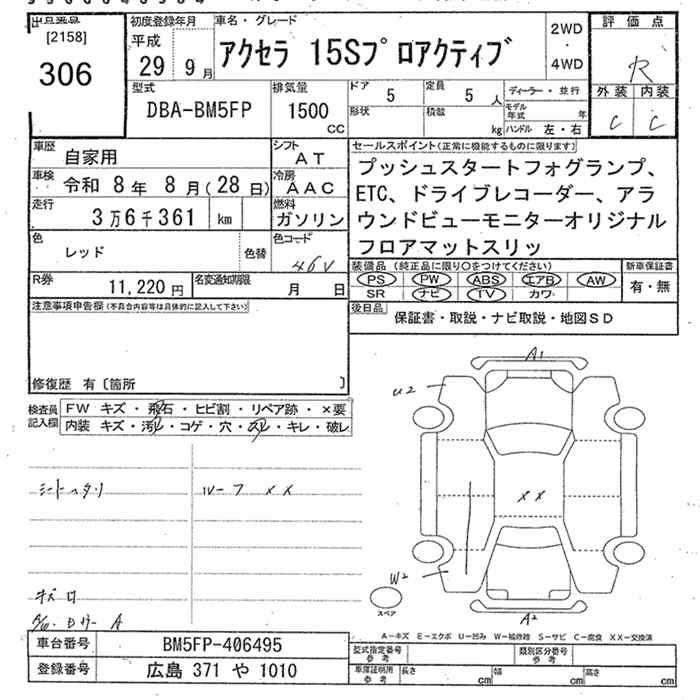 出品番号
[2158]
306
初度登録年月
平成
29 9月
車名・グレード
アクセラ 15Sプロアクティブ
2WD
・
4WD
評価点
R
外装 内装
C C
型式
DBA-BM5FP
排気量
1500
CC
ドア
5
定員
5 人
ディーラー・並行
形状
積載
kg
モデル年式 年
ハンドル 左・右
車歴
自家用
シフト
AT
車検
令和 8年 8月(28日)
冷房
AAC
走行
3万6千361 km
燃料
ガソリン
色
レッド
色替
色コード
46V
R券
11,220円
名変通知期限
月 日
セールスポイント(正常に機能するものに限ります)
プッシュスタートフォグランプ、
ETC、ドライブレコーダー、アラ
ウンドビューモニターオリジナル
フロアマットスリッ
装備品(純正品に限り〇をつけてください)
PS PW ABS エアB AW
SR ナビ TV カワ
新車保証書
有・無
後日品
保証書・取説・ナビ取説・地図SD
注意事項申告欄(不具合内容等は具体的に記入して下さい)
修復歴 有〔箇所 〕
検査員
記入欄
FW キズ・飛石・ヒビ割・リペア跡・×要
内装 キズ・汚レ・コゲ・穴・スレ・キレ・破レ
シートヘタリ
ルーフ XX
キズ 口
A
A1
U2
XX
W2
A2
スペア
A-キズ E-エクボ U-凹み W-補修跡 S-サビ C-腐食 XX-交換済
車台番号
BM5FP-406495
登録番号
広島 371 や 1010
型式指定番号
参考
類別区分番号
参考
車庫証明用
参考
長さ cm
幅 cm
高さ cm